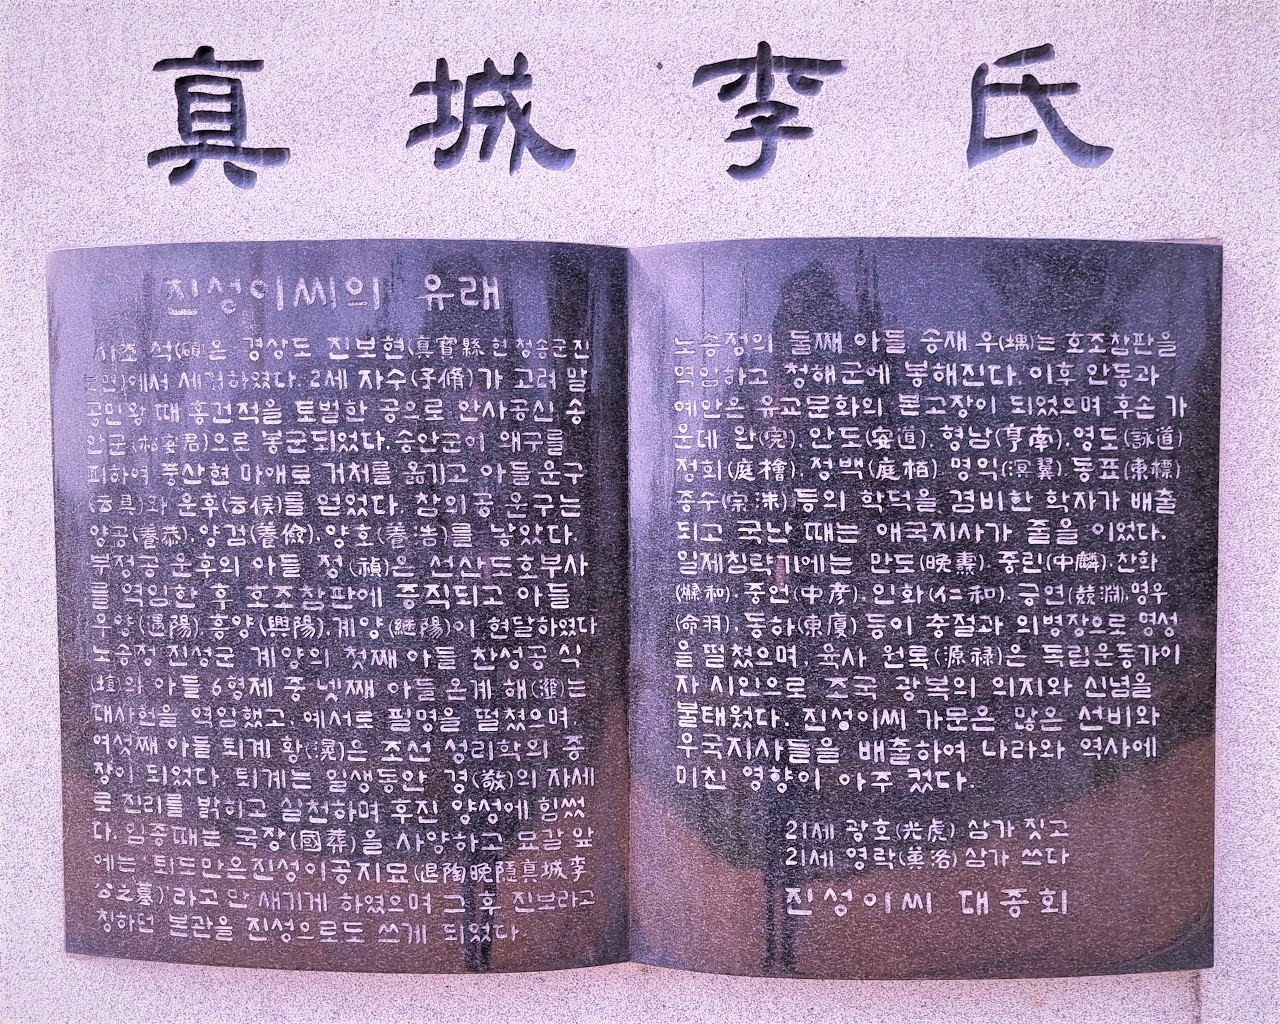 真城李氏
진성이씨의 유래
시조 석(碩)은 경상도 진보현(真寶縣 현 청송군 진
보면)에서 세거하였다. 2세 자수(子脩)가 고려 말
공민왕 때 홍건적을 토벌한 공으로 안사공신 송
안군(松安君)으로 봉군되었다. 송안군이 왜구를
피하여 풍산현 마애로 거처를 옮기고 아들 운구
와 운후(云侯)를 얻었다. 참의공 운구는
양공(養恭), 양검(養儉), 양호(養浩)를 낳았다.
부정공 운후의 아들 정(禎)은 선산도호부사
를 역임한 후 호조참판에 증직되고 아들
우양(遇陽), 흥양(興陽), 계양(繼陽)이 현달하였다
노송정 진성군 계양의 첫째 아들 찬성공 식
(埴)의 아들 6형제 중 넷째 아들 온계 해(瀣)는
대사헌을 역임했고, 예서로 필명을 떨쳤으며,
여섯째 아들 퇴계 황(滉)은 조선 성리학의 종
장이 되었다. 퇴계는 일생동안 경(敬)의 자세
로 진리를 밝히고 실천하며 후진 양성에 힘썼
다. 임종때는 국장(國葬)을 사양하고 묘갈 앞
에는 '퇴도만은진성이공지묘(退陶晚隱真城李
公之墓)'라고 만 새기게 하였으며 그 후 진보라고
칭하던 본관을 진성으로도 쓰게 되었다.
노송정의 둘째 아들 송재 우(堣)는 호조참판을
역임하고 청해군에 봉해진다. 이후 안동과
예안은 유교문화의 본고장이 되었으며 후손 가
운데 완(完), 안도(安道), 형남(亨南), 영도(詠道)
정회(庭檜), 정백(庭栢), 명익(溟翼), 동표(東標)
종수(宗洙)등의 학덕을 겸비한 학자가 배출
되고 국난 때는 애국지사가 줄을 이었다.
일제침략기에는 만도(晩燾), 중린(中麟), 찬화
중언(中彦), 인화(仁和), 긍연(兢淵), 명우
(命羽), 동하(東廈) 등이 충절과 의병장으로 명성
을 떨쳤으며, 육사 원록(源祿)은 독립운동가이
자 시인으로 조국 광복의 의지와 신념을
불태웠다. 진성이씨 가문은 많은 선비와
우국지사들을 배출하여 나라와 역사에
미친 영향이 아주 컸다.
21세 광호(光虎) 삼가 짓고
21세 영락(英洛) 삼가 쓰다
진성이씨 대종회